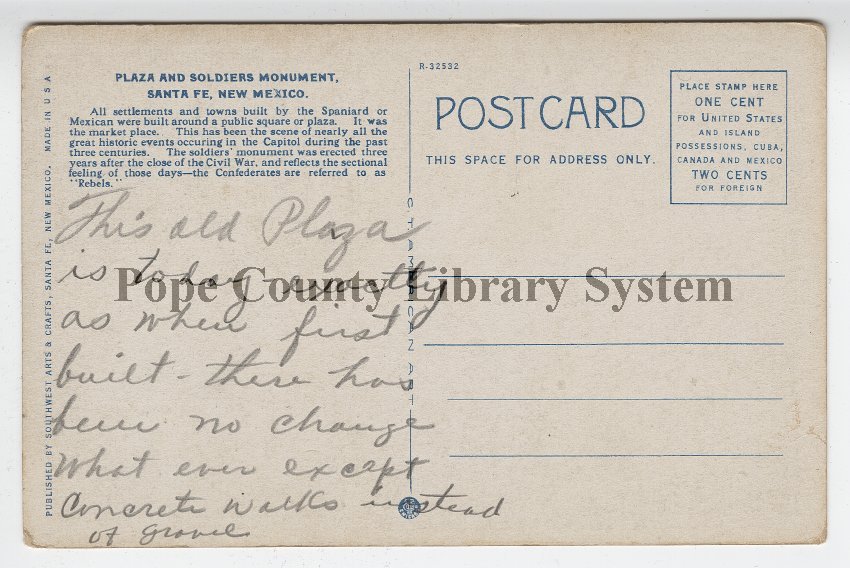 PLAZA AND SOLDIERS MONUMENT,
SANTA FE, NEW MEXICO.
All settlements and towns built by the Spaniard or
Mexican were built around a public square or plaza. It was
the market place. This has been the scene of nearly all the
great historic events occuring in the Capitol during the past
three centuries. The soldiers' monument was erected three
years after the close of the Civil War, and reflects the sectional
feeling of those days—the Confederates are referred to as
"Rebels."
This old Plaza
is today exactly
as when first
built - there has
been no change
what ever except
Concrete walks instead
of gravel
PUBLISHED BY SOUTHWEST ARTS & CRAFTS, SANTA FE, NEW MEXICO. MADE IN U S A
R-32532
POST CARD
THIS SPACE FOR ADDRESS ONLY.
PLACE STAMP HERE
ONE CENT
FOR UNITED STATES
AND ISLAND
POSSESSIONS, CUBA,
CANADA AND MEXICO
TWO CENTS
FOR FOREIGN
Pope County Library System